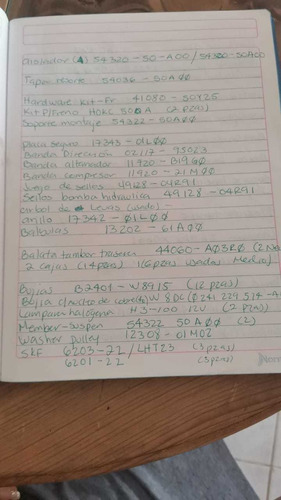 (A) 54320-50-A00/54300-50A00
Tapon resorte 54036-50A00
Hardware Kit-Fr 41080-50Y25
Kit P/Freno HOKC 50A (2 pzas)
Soporte montaje 54322-50A00
placa seguro 17343-01L00
Banda Dirección 02117-93023
Banda alternador 11920-B19G0
Banda compresor 11920-21M00
Juego de sellos 49128-04R91
Sellos bomba hidraulica 49128-04R91
arbol de Levas
anillo 17342-01L00
Balbulas 13202-61A00
Balata tambor trasera 44060-A03R0
2 Cajas (14pzas)
Bujias B2401-W8915 (12 pzas)
Bujia W8DC (0241 229 514-A
Lampara halogena H3-100 12V (2 pzas)
Member-suspen 54322 50A00 (2)
Washer pulley 12308-01M02
SKF 6203-2Z/LHT23 (3 pzas)
6201-2Z (3 pzas)